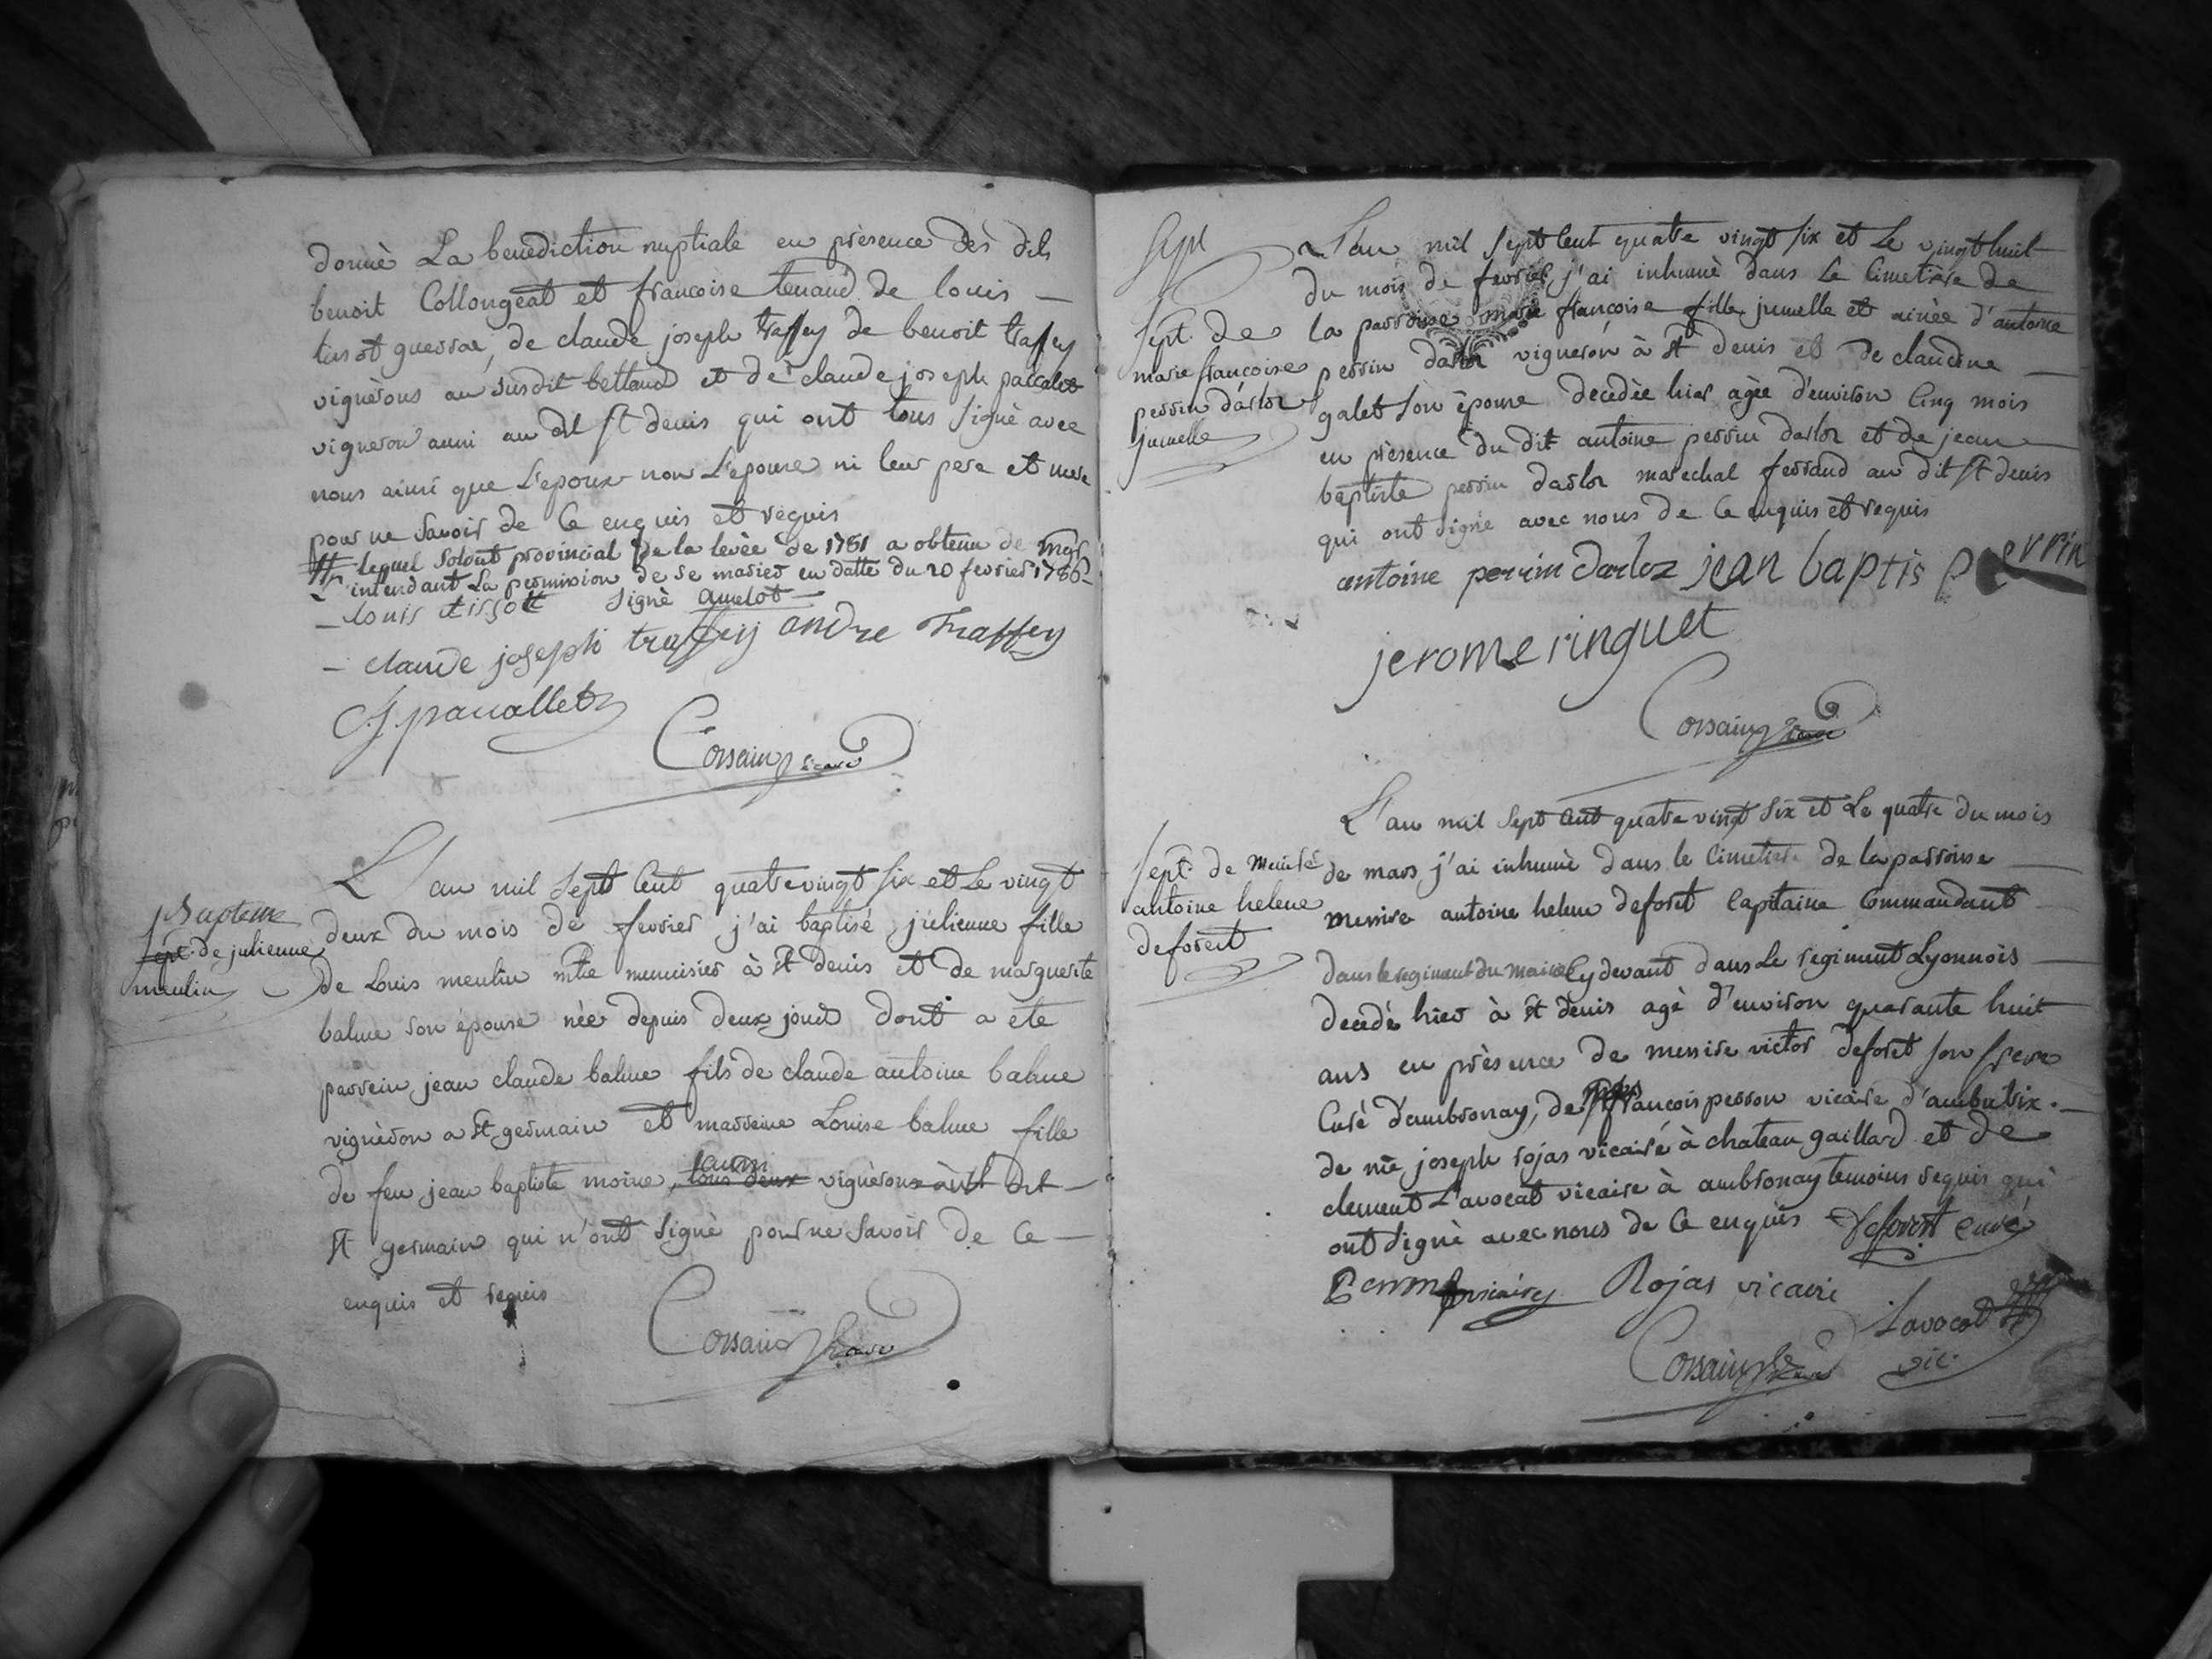 donnè La benediction nuptiale en prèsence des dits
benoit Collongeat et francoise tenand de louis —
tissot guessae, de claude joseph traffey de benoit traffey
vignèrons au susdit bettand et de claude joseph paccalet
vigneron aussi au dit St denis qui ont tous signè avec
nous ainsi que L'epoux non L'epouse ni leur pere et mere
pour ne savoir de Ce enquis et requis
lequel Soldat provincial de la levèe de 1781 a obtenu de mgr
intendant La permission de se marier en datte du 20 fevrier 1786
— louis tissott Signè amelot —
— claude joseph traffey andre Traffey
Cj paccallet
Corsain vicaire
Bapteme
sept. de julienne
meulin
L'an mil Sept Cent quatrevingt six et Le vingt
deux du mois de fevrier j'ai baptisé julienne fille
de Louis meulin mtre menuisier à St denis et de marguerite
balme son épouse nèe depuis deux jours dont a ete
parrein jean claude balme fils de claude antoine balme
vignèron a St germain et marreine Louise balme fille
de feu jean baptiste moine, tous deux vignèrons audit
aussi
St germain qui n'ont signè pour ne savoir de Ce —
enquis et requis
Corsain vicaire
Sept
Sept. de
marie françoise
perrin darloz
jumelle
L'an mil Sept Cent quatre vingt six et Le vingt huit
du mois de fevrier j'ai inhumè dans Le Cimetière de
la parroisse marie françoise fille jumelle et ainèe d'antoine
perrin darloz vigneron à St denis et de claudine —
galet son èpouse decèdèe hier agèe d'environ Cinq mois
en prèsence du dit antoine perrin darloz et de jean —
baptiste perrin darloz marechal ferrand au dit St denis
qui ont signè avec nous de Ce enquis et requis
antoine perrin darloz jean baptis perrin
jerome ringuet
Corsain vicaire
Sept. de messire
antoine helene
deforest
L'an mil Sept Cent quatre vingt Six et Le quatre du mois
de mars j'ai inhumè dans le Cimetiere de la parroisse —
messire antoine helene deforet Capitaine Commandant —
dans le regiment du maine Cy devant dans Le regiment Lyonnois —
decèdè hier à St denis agè d'environ quarante huit
ans en prèsence de messire victor deforet son frere
Curè d'ambronay, de françois perron vicaire d'ambutrix. —
de me joseph rojas vicaire à chateau gaillard et de
clement L'avocat vicaire à ambronay temoins requis qui
ont signè avec nous de Ce enquis Deforest curé
Perron vicaire Rojas vicaire
Lavocat
vic.
Corsain vicaire